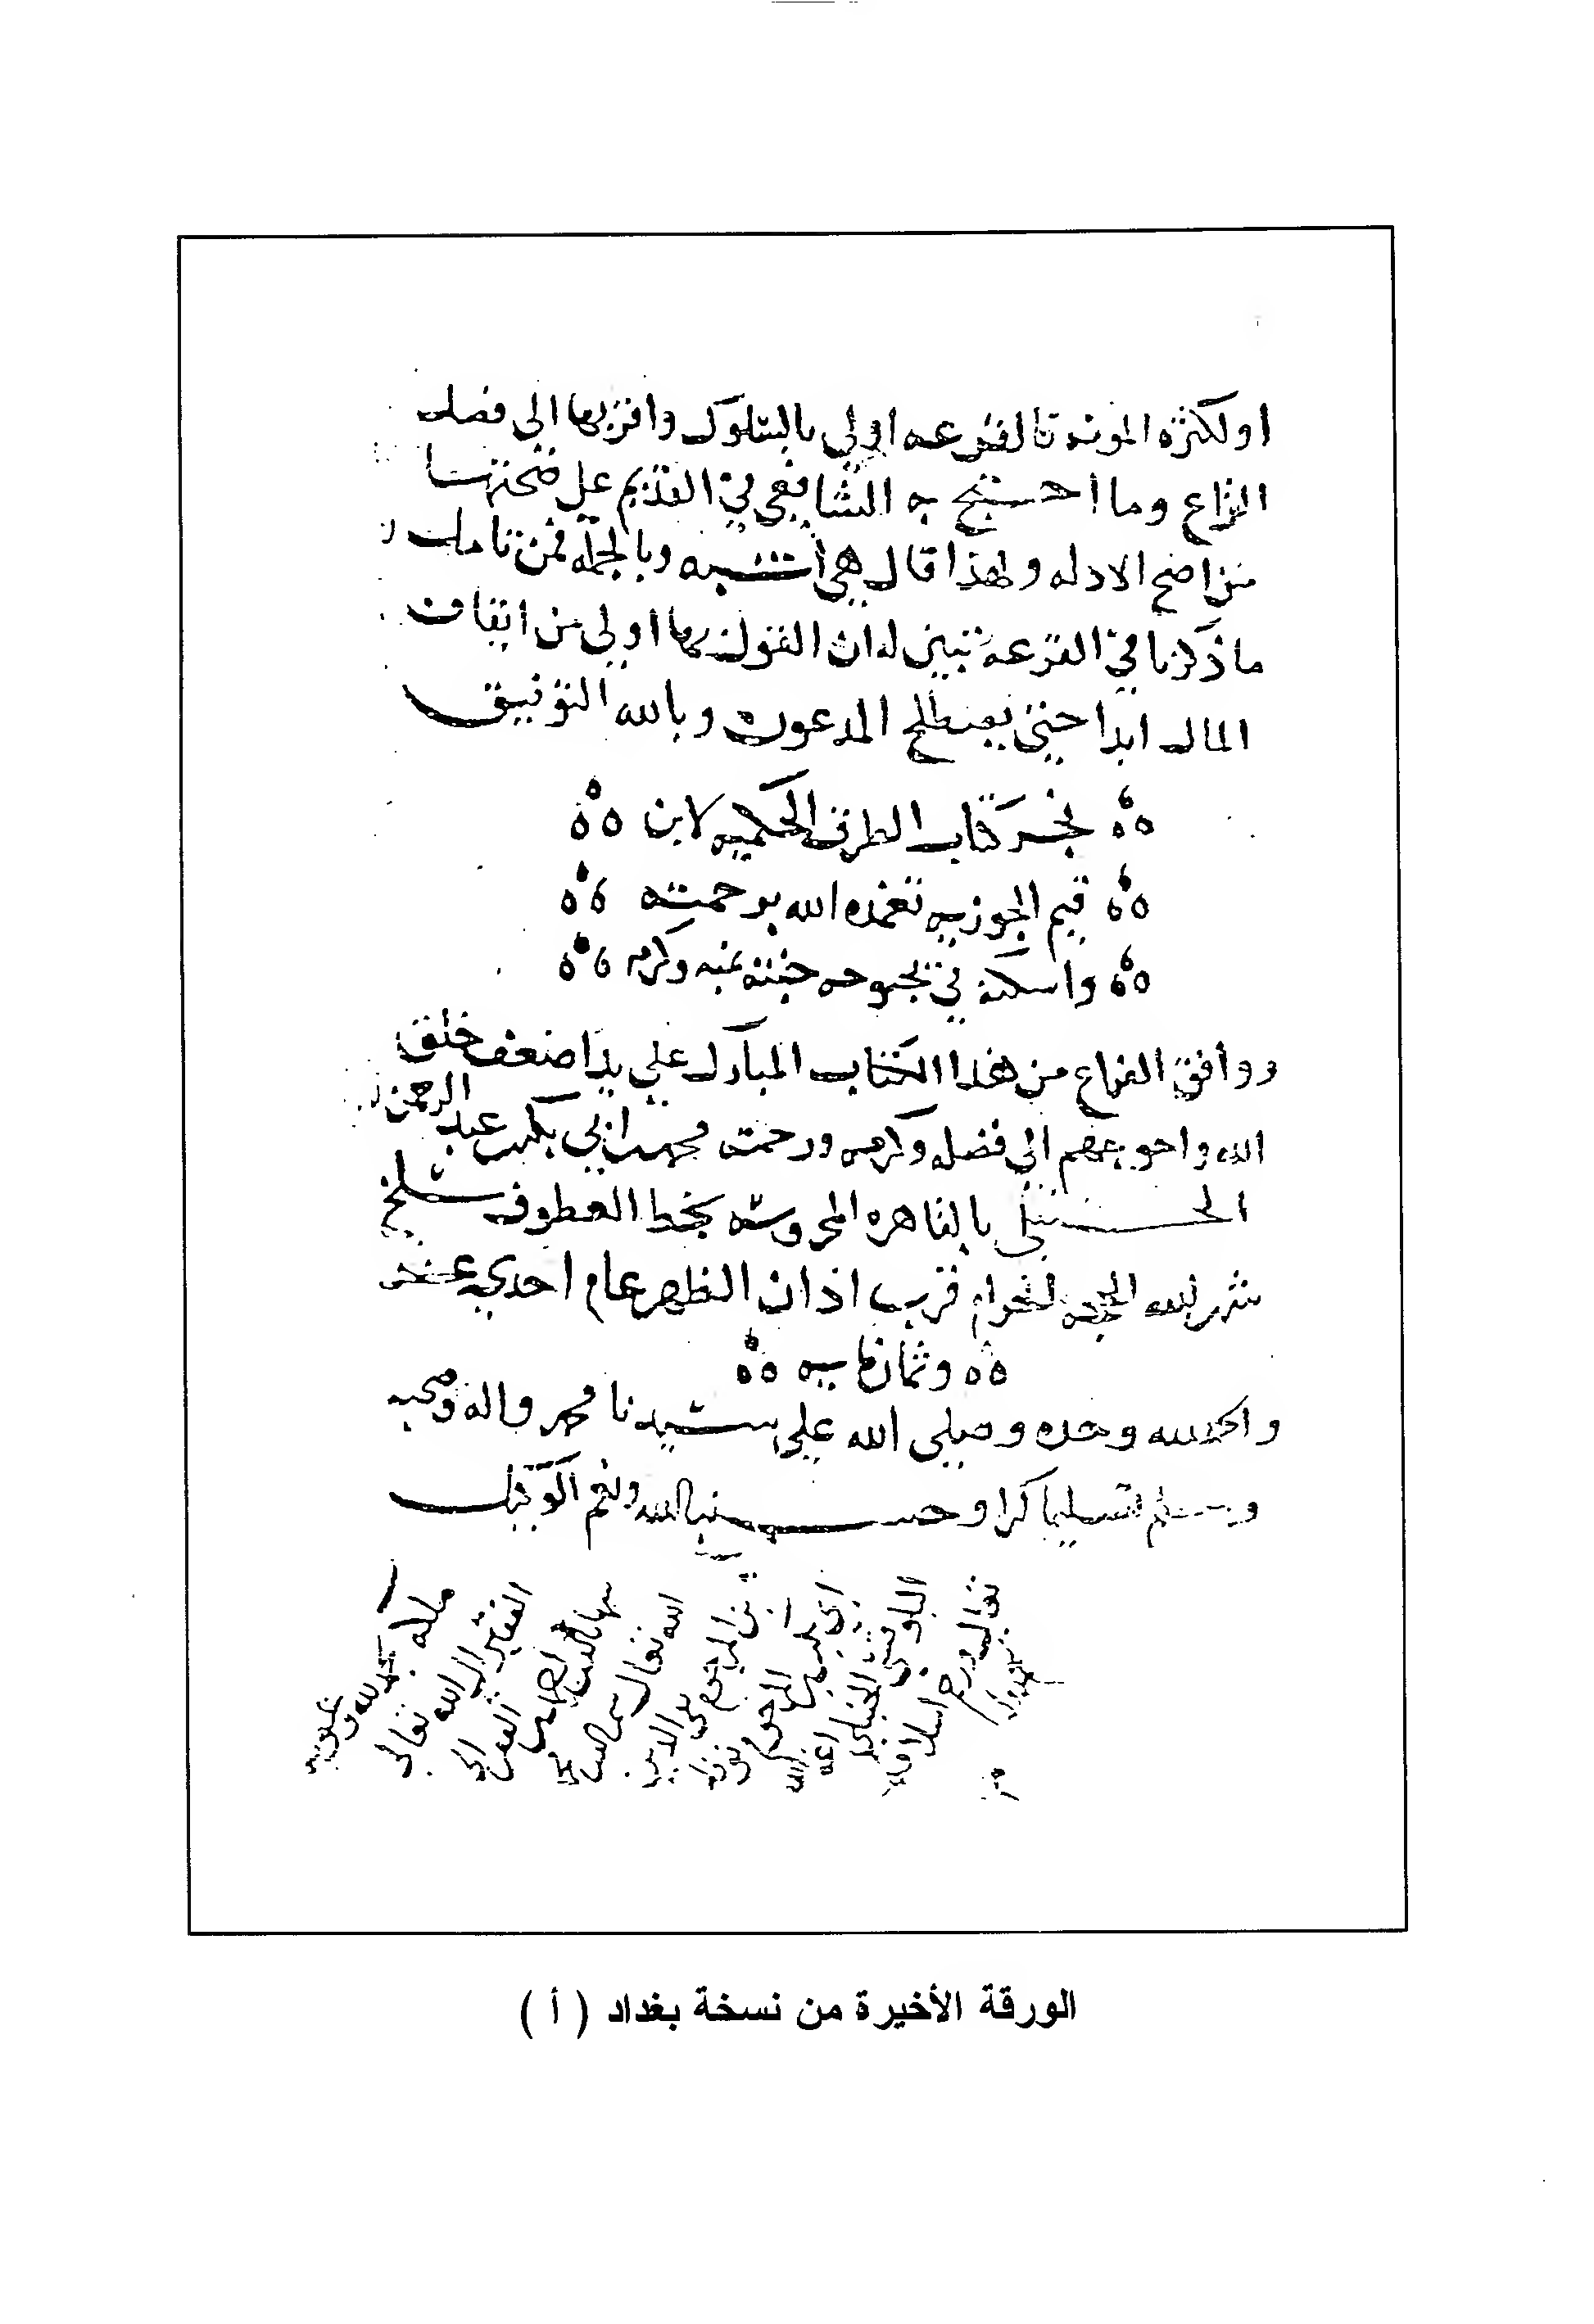 او لكثره المونه فالقرعه اولى بالسلوك واقربها الى فصل
النزاع وما احتج به الشافعي في القديم على صحتها
من اصح الادله ولهذا قال هي اشبه وبالجمله فمن تامل
ما ذكرنا في القرعه تبين له ان القول بها اولى من ايقاف
المال ابدا حتى يصطلح المدعون وبالله التوفيق
نجز كتاب الطرق الحكميه لابن
قيم الجوزيه تغمده الله برحمته
واسكنه في بحبوحه جنته بمنه وكرمه
ووافق الفراغ من هذا الكتاب المبارك على يد اضعف خلق
الله واحوجهم الى فضله وكرمه ورحمته محمد ابي بكر عبد الرحمن
الحنبلي بالقاهره المحروسه بخط العطوف سلخ
شهر الله الحرام قرب اذان الظهر عام احدي عشر
وثمانمايه
والحمد لله وحده وصلى الله على سيدنا محمد واله وصحبه
وسلم تسليما كثيرا وحسبنا الله ونعم الوكيل
ملكه بحمد لله وعونه
الفقير الى الله تعالى
الله تعالى
ابن المرحوم
تعالى
الورقة الأخيرة من نسخة بغداد ( أ )